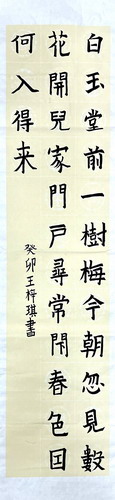 白玉堂前一樹梅今朝忽見數
花開兒家門戶尋常閉春色因
何入得来
癸卯王梓琪書